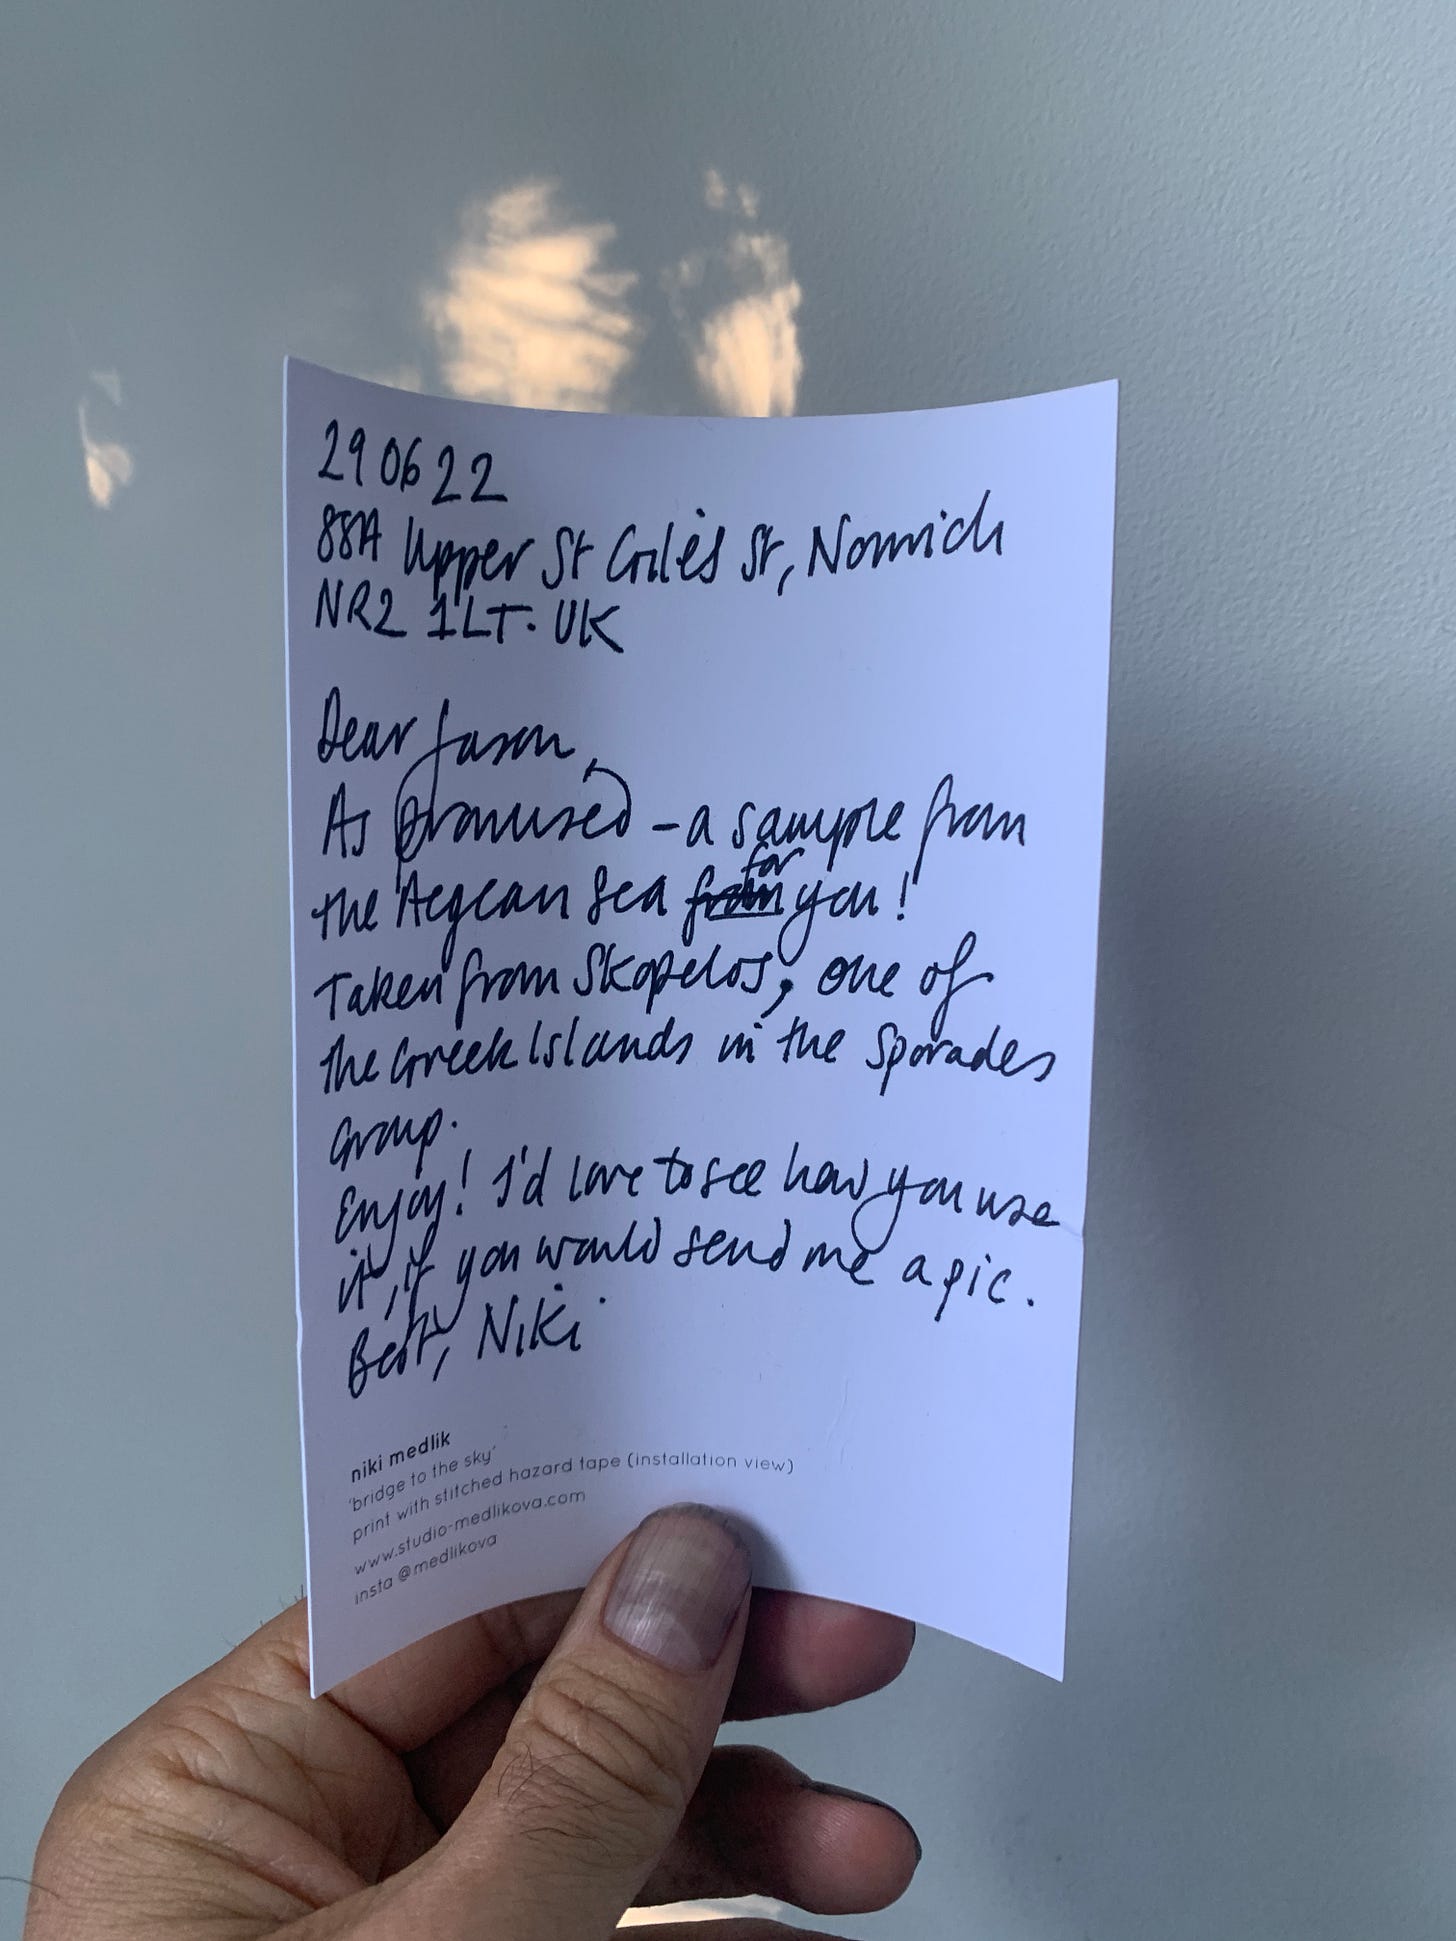 29 06 22
88A Upper St Giles St, Norwich
NR2 1LT. UK
Dear Jason,
As promised – a sample from
the Aegean Sea from for you!
Taken from Skopelos, one of
the Greek Islands in the Sporades
Group.
Enjoy! I'd love to see how you use
it, if you would send me a pic.
Best, Niki
niki medlik
'bridge to the sky'
print with stitched hazard tape (installation view)
www.studio-medlikova.com
insta @medlikova